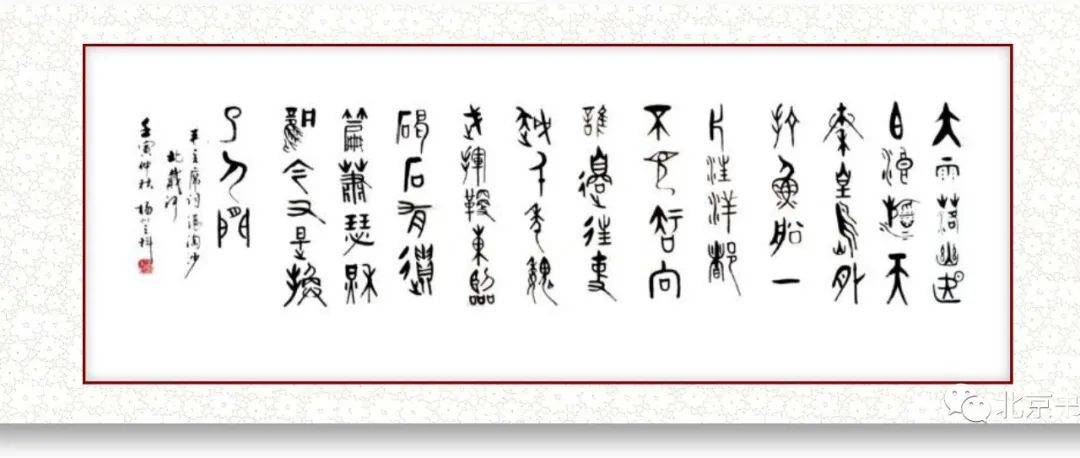 大雨落幽燕
白浪滔天
秦皇島外
打魚船一
片汪洋都
不見知向
誰邊往事
越千年魏
武揮鞭東臨
碣石有遺
篇蕭瑟秋
風今又是換
了人間
毛主席詞浪淘沙
北戴河
壬寅仲秋 楊
北京